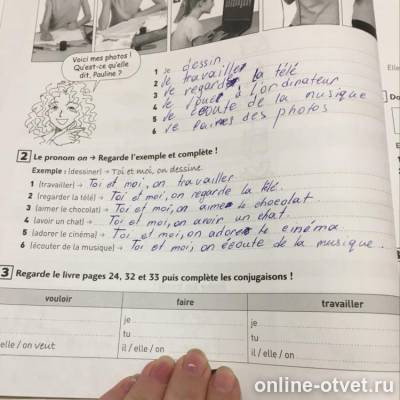 Voici mes photos !
Qu'est-ce qu'elle
dit, Pauline ?
1 Je dessin.
2 Je travailler
3 Je regarde la télé
4 Je joue à l'ordinateur
5 Je écoute de la musique
6 Je faire des photos
2 Le pronom on → Regarde l'exemple et complète !
Exemple : (dessiner) → Toi et moi, on dessine.
1 (travailler) → Toi et moi, on travailler
2 (regarder la télé) → Toi et moi, on regarde la télé.
3 (aimer le chocolat) → Toi et moi, on aime le chocolat
4 (avoir un chat) → Toi et moi, on avoir un chat.
5 (adorer le cinéma) → Toi et moi, on adore le cinéma
6 (écouter de la musique) → Toi et moi, on écoute de la musique.
3 Regarde le livre pages 24, 32 et 33 puis complète les conjugaisons !
vouloir faire travailler
je je
tu tu
elle / on veut il / elle / on il / elle / on
online-otvet.ru